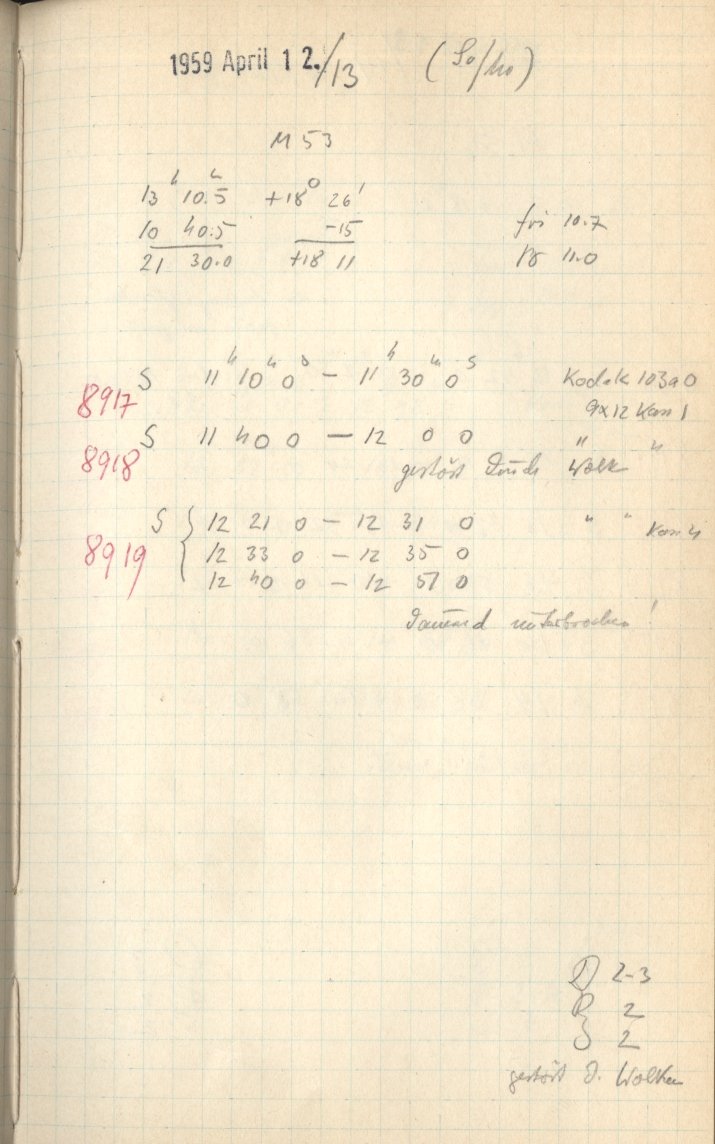 1959 April 12./13 (So/Mo)
M 53
13 h 10.5 m +18° 26'
10 40.5 -15
21 30.0 +18 11
10.7
11.0
8917 S 11 h 10 m 0 s – 11 h 30 m 0 s Kodak 103aO
9x12 Kam 1
8918 S 11 40 0 – 12 0 0 " "
gestört durch Wolk
8919 S { 12 21 0 – 12 31 0 " " Kam 4
12 33 0 – 12 35 0
12 40 0 – 12 51 0
Dauernd unterbrochen!
D 2-3
R 2
S 2
gestört d. Wolken